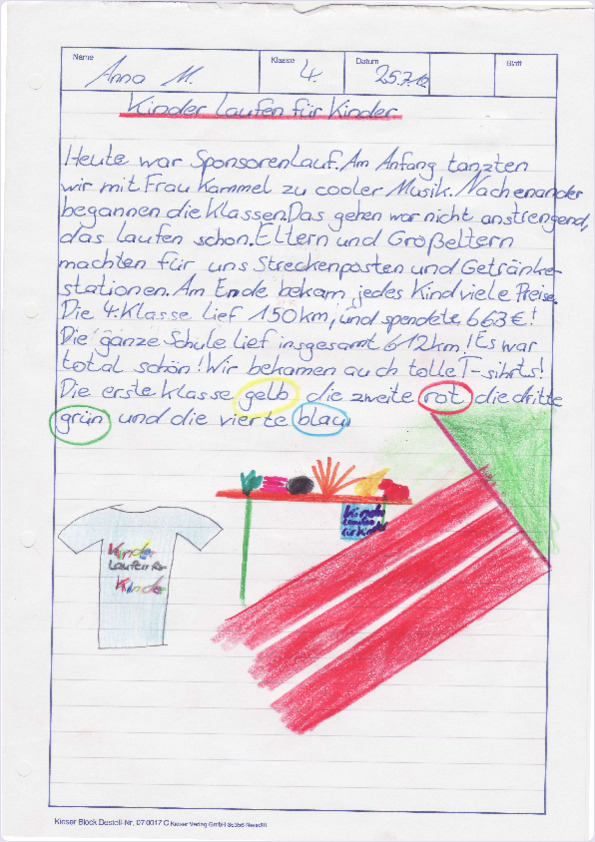 Name Klasse Datum Blatt
Anna M. 4. 25.7.12
Kinder Laufen für Kinder
Heute war Sponsorenlauf. Am Anfang tanzten
wir mit Frau Kammel zu cooler Musik. Nachenander
begannen die Klassen. Das gehen war nicht anstrengend,
das laufen schon. Eltern und Großeltern
machten für uns Streckenposten und Getränke-
stationen. Am Ende bekam jedes Kind viele Preise.
Die 4. Klasse lief 150 km, und spendete 663 €!
Die ganze Schule lief insgesamt 612 km! Es war
total schön! Wir bekamen auch tolle T-sihrts!
Die erste Klasse gelb, die zweite rot, die dritte
grün und die vierte blau.
Kinder
Laufen für
Kinder
Kinder
Laufen
für Kinder
Kieser Block Bestell-Nr. 07 0017 C Kieser Verlag GmbH